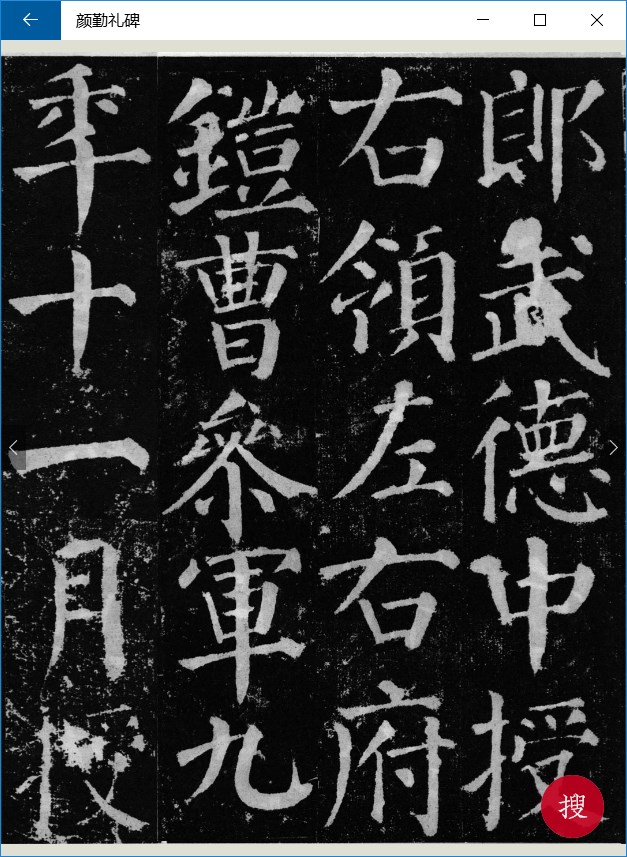 颜勤礼碑
郎武德中授
右領左右府
鎧曹參軍九
年十一月授
搜